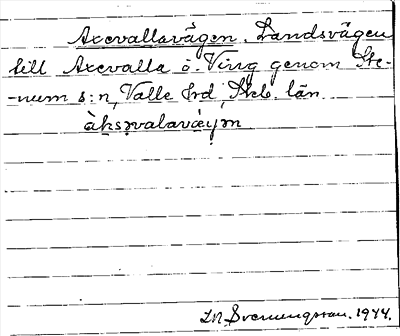 Axevallavägen. Landsvägen
till Axevalla o. Ving genom Ste-
-num s:n, Valle hrd, Skb. län
àksǝvalavä̀yǝn
Svenungsson. 1944.